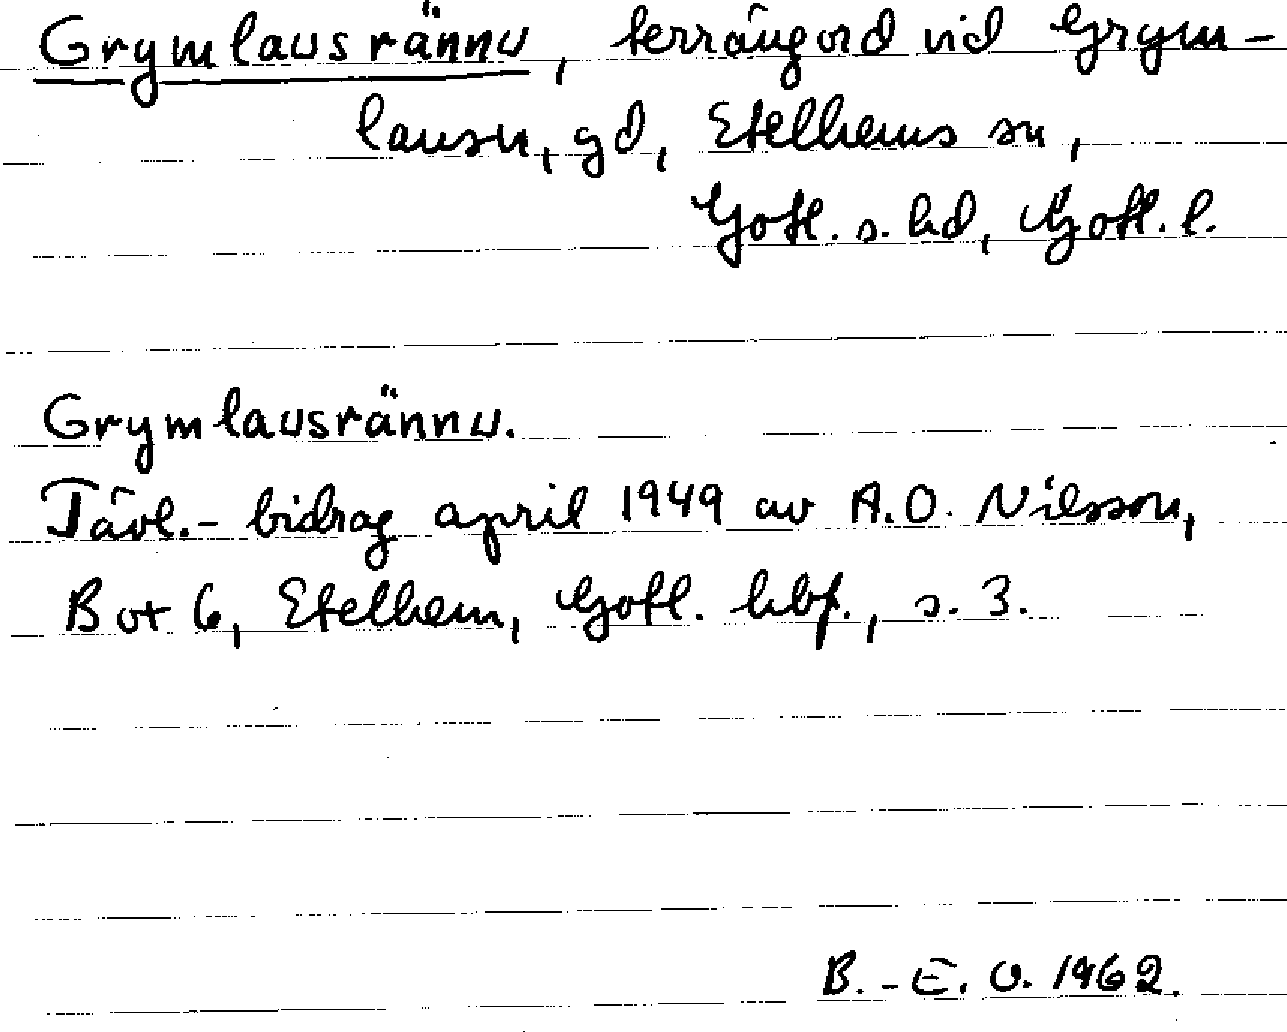 Grymlausrännu, terrängord vid Grym-
lausu, gd, Etelhems sn,
Gotl. s. hd, Gotl. l.
Grymlausrännu.
Tävl.-bidrag april 1949 av A.O. Nilsson,
Box 6, Etelhem, Gotl. hbf., s. 3.
B.-E. O. 1962.